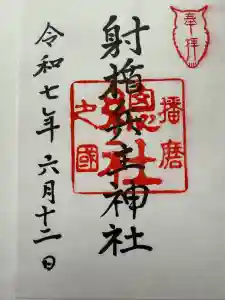 奉拝
射楯兵主神社
播磨
總社
之國
令和七年六月十二日